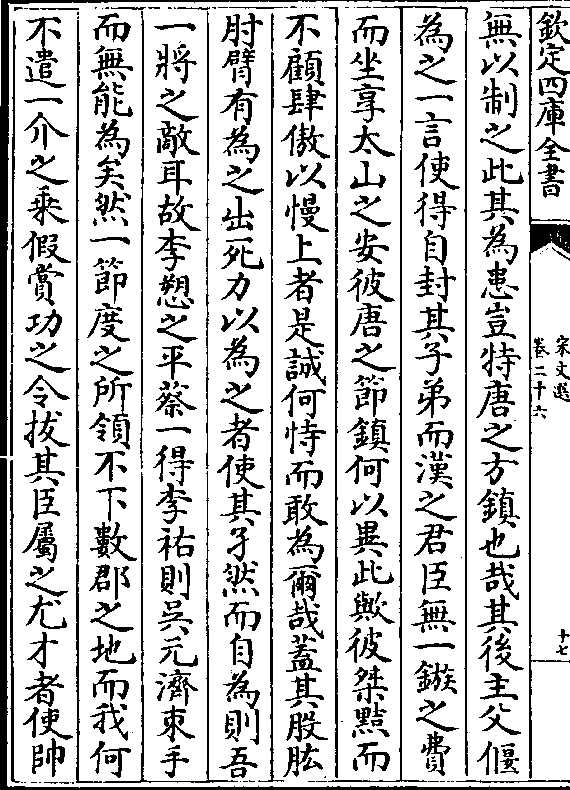 欽定四庫全書
宋文選
卷二十六
十七
無以制之此其為患豈特唐之方鎮也哉其後主父偃
為之一言使得自封其子弟而漢之君臣無一鏃之費
而坐享太山之安彼唐之節鎮何以異此歟彼桀黠而
不顧肆傲以慢上者是誠何恃而敢為爾哉蓋其股肱
肘臂有為之出死力以為之者使其孑然而自為則吾
一將之敵耳故李愬之平蔡一得李祐則吳元濟束手
而無能為矣然一節度之所領不下數郡之地而我何
不遣一介之乘假賞功之令拔其臣屬之尤才者使帥